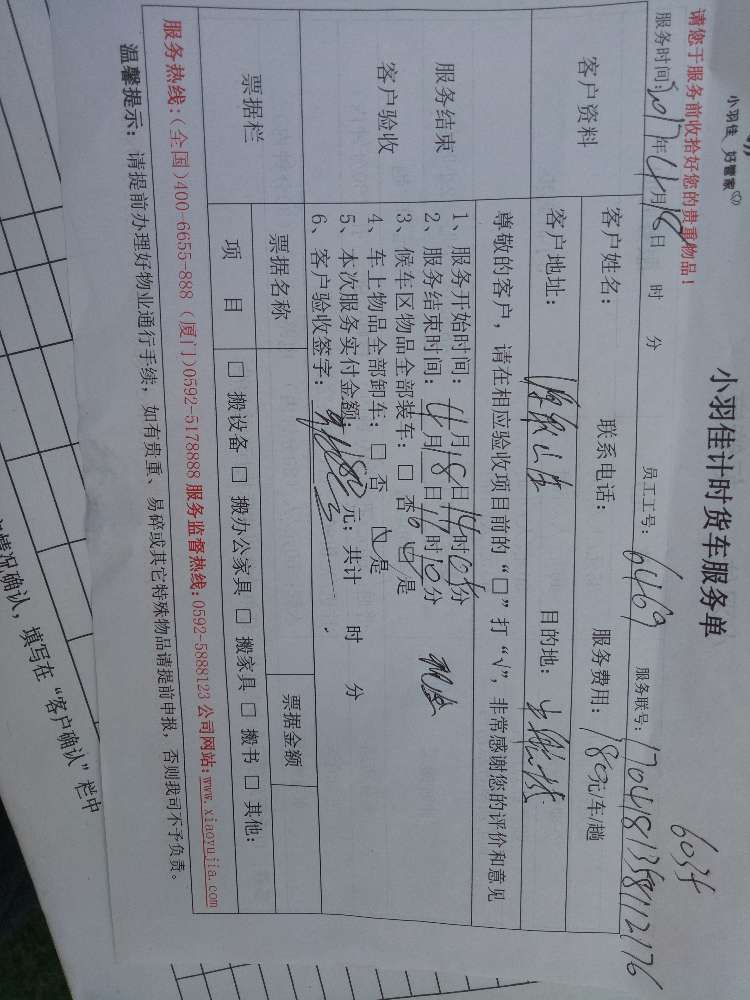 小羽佳 好管家
小羽佳计时货车服务单
6035
请您于服务前收拾好您的贵重物品！
服务时间：2017年4月18日 时 分 员工工号：6469 服务联号：1704181358112176
客户资料
客户姓名： 联系电话： 服务费用：180元/车/趟
客户地址： 目的地：
服务结束
客户验收
尊敬的客户，请在相应验收项目前的“□”打“√”，非常感谢您的评价和意见
1、服务开始时间：4月18日14时05分
2、服务结束时间：4月18日17时10分
3、候车区物品全部装车：□ 否 ☑ 是
4、车上物品全部卸车：□ 否 ☑ 是
5、本次服务实付金额：180元；共计 时 分
6、客户验收签字：
票据栏
票据名称 票据金额
项 目 □ 搬设备 □ 搬办公家具 □ 搬家具 □ 搬书 □ 其他:
服务热线:(全国)400-6655-888 (厦门)0592-5178888 服务监督热线:0592-5888123 公司网站:www.xiaoyujia.com
温馨提示：请提前办理好物业通行手续，如有贵重、易碎或其它特殊物品请提前申报，否则我司不予负责。
情况确认，填写在“客户确认”栏中